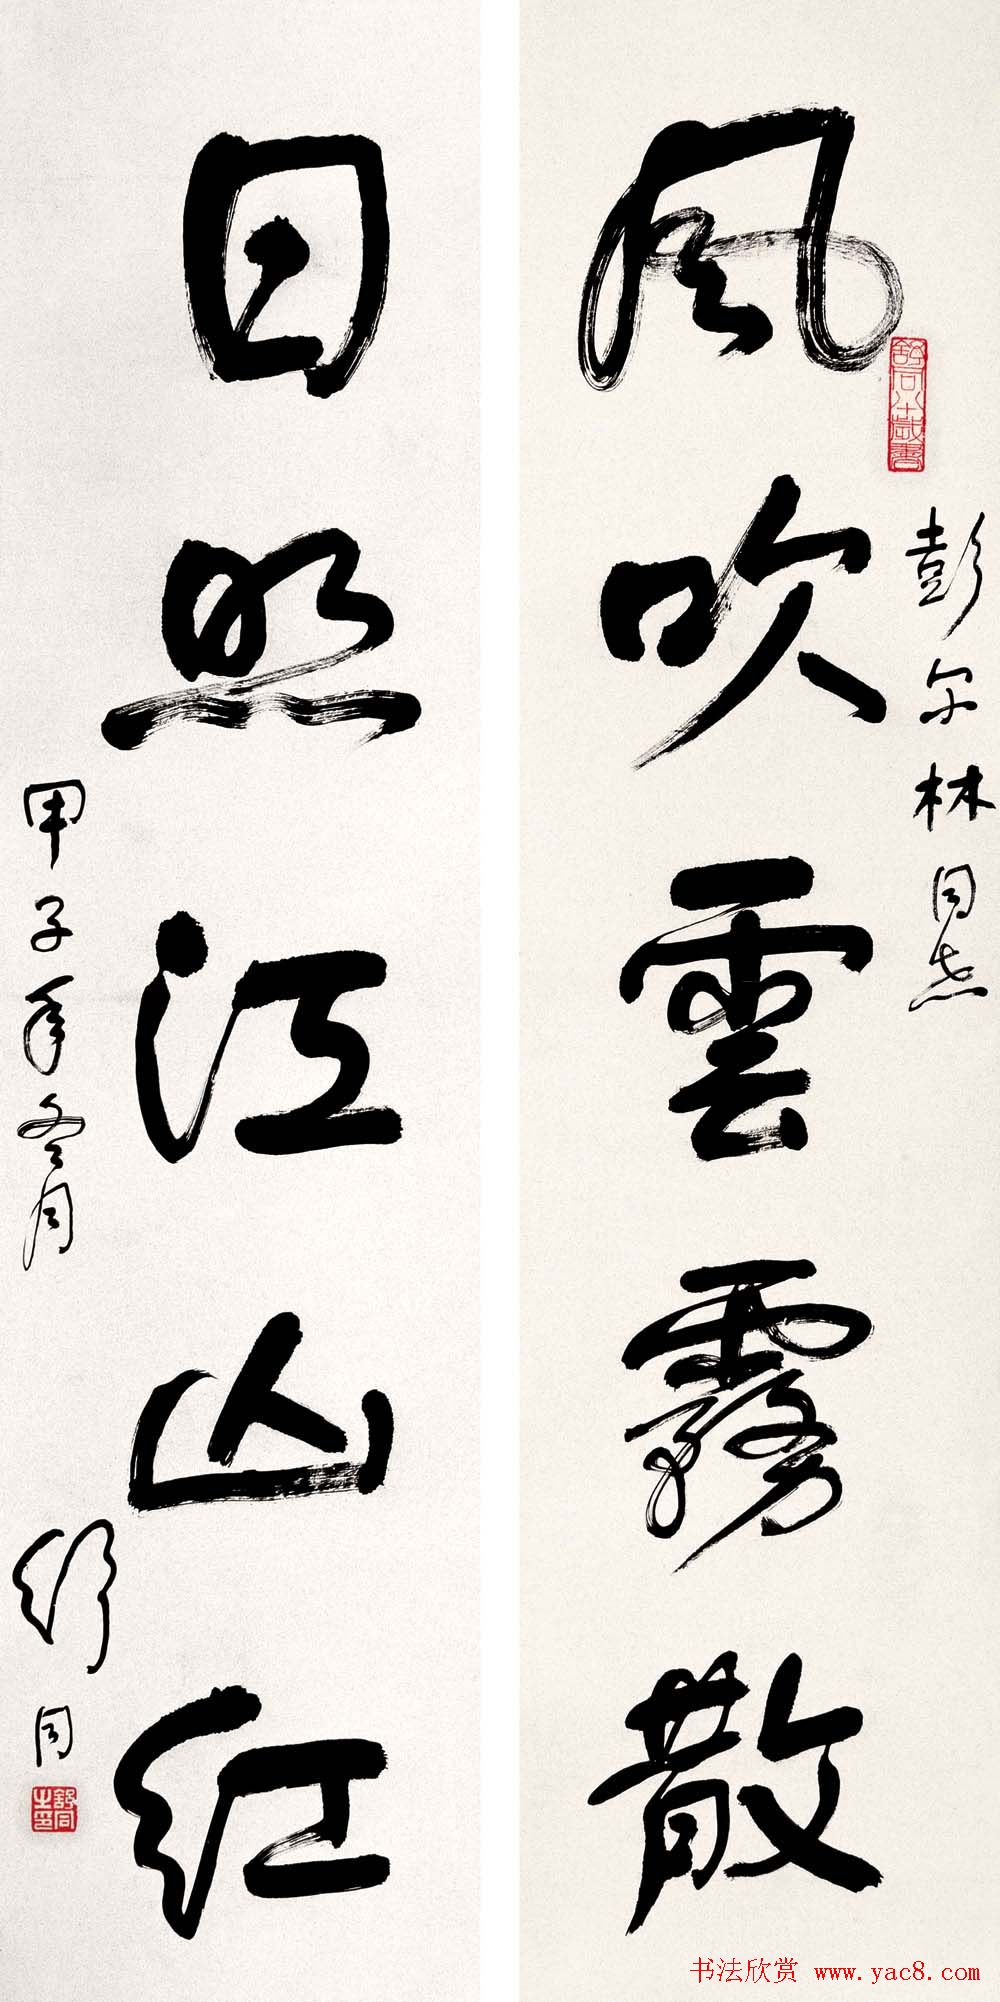 风吹雲霧散
彭尔林同志
舒同八十歲書
日照江山红
甲子年冬月
舒同
舒同之印
书法欣赏 www.yac8.com